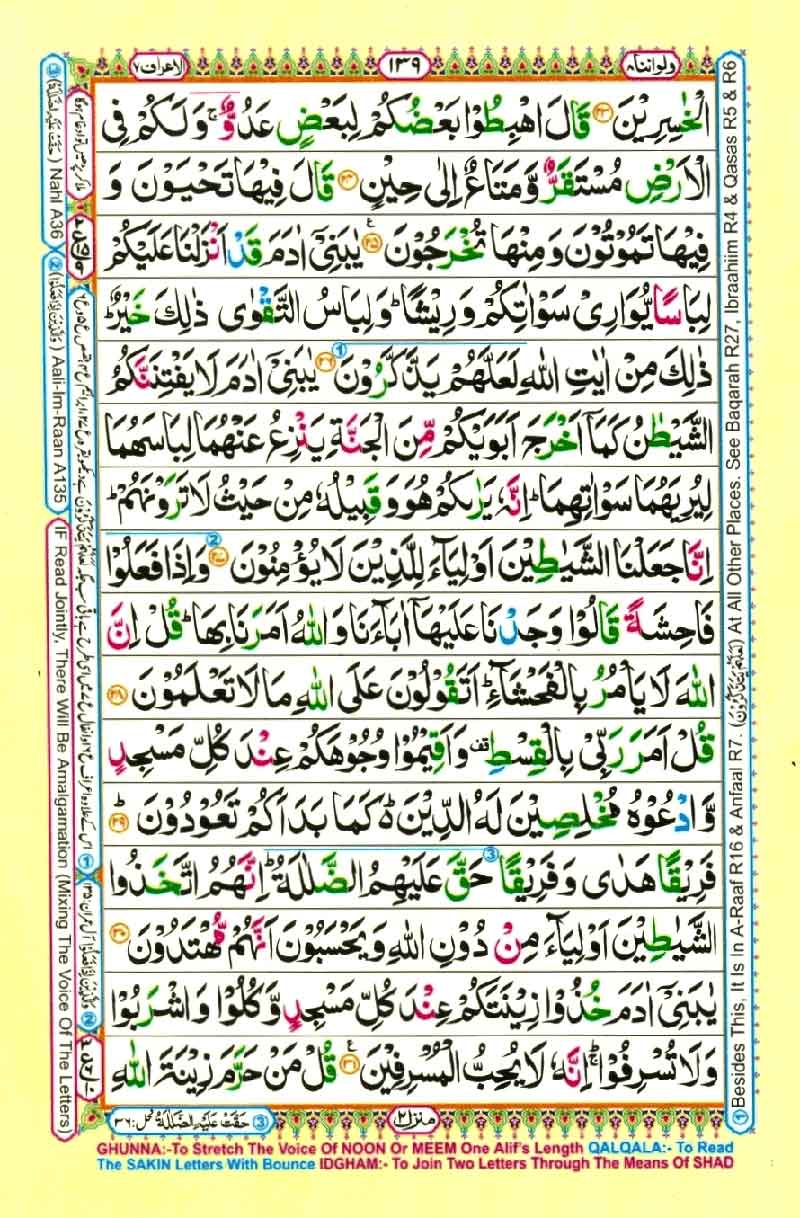 الاعراف ٧
١٣٩
ولواننا ٨
الْخٰسِرِيْنَ ﴿٢٣﴾ قَالَ اهْبِطُوْا بَعْضُكُمْ لِبَعْضٍ عَدُوٌّ ۚ وَلَكُمْ فِى
الْاَرْضِ مُسْتَقَرٌّ وَّمَتَاعٌ اِلٰى حِيْنٍ ﴿٢٤﴾ قَالَ فِيْهَا تَحْيَوْنَ وَ
فِيْهَا تَمُوْتُوْنَ وَمِنْهَا تُخْرَجُوْنَ ﴿٢٥﴾ يٰبَنِىْٓ اٰدَمَ قَدْ اَنْزَلْنَا عَلَيْكُمْ
لِبَاسًا يُّوَارِىْ سَوْاٰتِكُمْ وَرِيْشًا ؕ وَلِبَاسُ التَّقْوٰى ذٰلِكَ خَيْرٌ ؕ
ذٰلِكَ مِنْ اٰيٰتِ اللّٰهِ لَعَلَّهُمْ يَذَّكَّرُوْنَ ﴿٢٦﴾ يٰبَنِىْٓ اٰدَمَ لَا يَفْتِنَنَّكُمُ
الشَّيْطٰنُ كَمَآ اَخْرَجَ اَبَوَيْكُمْ مِّنَ الْجَنَّةِ يَنْزِعُ عَنْهُمَا لِبَاسَهُمَا
لِيُرِيَهُمَا سَوْاٰتِهِمَا ؕ اِنَّهٗ يَرٰىكُمْ هُوَ وَقَبِيْلُهٗ مِنْ حَيْثُ لَا تَرَوْنَهُمْ ؕ
اِنَّا جَعَلْنَا الشَّيٰطِيْنَ اَوْلِيَآءَ لِلَّذِيْنَ لَا يُؤْمِنُوْنَ ﴿٢٧﴾ وَاِذَا فَعَلُوْا
فَاحِشَةً قَالُوْا وَجَدْنَا عَلَيْهَآ اٰبَآءَنَا وَاللّٰهُ اَمَرَنَا بِهَا ؕ قُلْ اِنَّ
اللّٰهَ لَا يَاْمُرُ بِالْفَحْشَآءِ ؕ اَتَقُوْلُوْنَ عَلَى اللّٰهِ مَا لَا تَعْلَمُوْنَ ﴿٢٨﴾
قُلْ اَمَرَ رَبِّىْ بِالْقِسْطِ ۫ وَاَقِيْمُوْا وُجُوْهَكُمْ عِنْدَ كُلِّ مَسْجِدٍ
وَّادْعُوْهُ مُخْلِصِيْنَ لَهُ الدِّيْنَ ۬ؕ كَمَا بَدَاَكُمْ تَعُوْدُوْنَ ﴿٢٩﴾
فَرِيْقًا هَدٰى وَفَرِيْقًا حَقَّ عَلَيْهِمُ الضَّلٰلَةُ ؕ اِنَّهُمُ اتَّخَذُوا
الشَّيٰطِيْنَ اَوْلِيَآءَ مِنْ دُوْنِ اللّٰهِ وَيَحْسَبُوْنَ اَنَّهُمْ مُّهْتَدُوْنَ ﴿٣٠﴾
يٰبَنِىْٓ اٰدَمَ خُذُوْا زِيْنَتَكُمْ عِنْدَ كُلِّ مَسْجِدٍ وَّكُلُوْا وَاشْرَبُوْا
وَلَا تُسْرِفُوْا ۚ اِنَّهٗ لَا يُحِبُّ الْمُسْرِفِيْنَ ﴿٣١﴾ قُلْ مَنْ حَرَّمَ زِيْنَةَ اللّٰهِ
منزل ٢
③ حَقَّتْ عَلَيْهِ الضَّلٰلَةُ نحل: ٣٦
① Besides This, It Is In A-Raaf R16 & Anfaal R7. (لَعَلَّهُمْ يَذَّكَّرُوْنَ) At All Other Places. See Baqarah R27, Ibraahiim R4 & Qasas R5 & R6
③ (حَقَّتْ عَلَيْهِ الضَّلٰلَةُ) Nahl A36
② (وَالَّذِيْنَ اِذَا فَعَلُوْا) Aali-Im-Raan A135
(IF Read Jointly, There Will Be Amalgamation (Mixing The Voice Of The Letters)
② وَالَّذِيْنَ اِذَا فَعَلُوْا آل عمران: ١٣٥
GHUNNA:-To Stretch The Voice Of NOON Or MEEM One Alif's Length QALQALA:- To Read
The SAKIN Letters With Bounce IDGHAM:- To Join Two Letters Through The Means Of SHAD